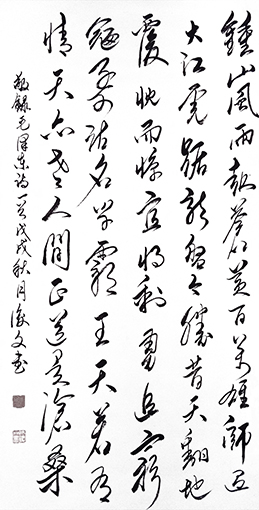 鍾山風雨起蒼黃百萬雄師過
大江虎踞龍盤今勝昔天翻地
覆慨而慷宜將剩勇追窮
寇不可沽名学霸王天若有
情天亦老人間正道是滄桑
敬録毛澤東詩一首戊戌秋月俊文書